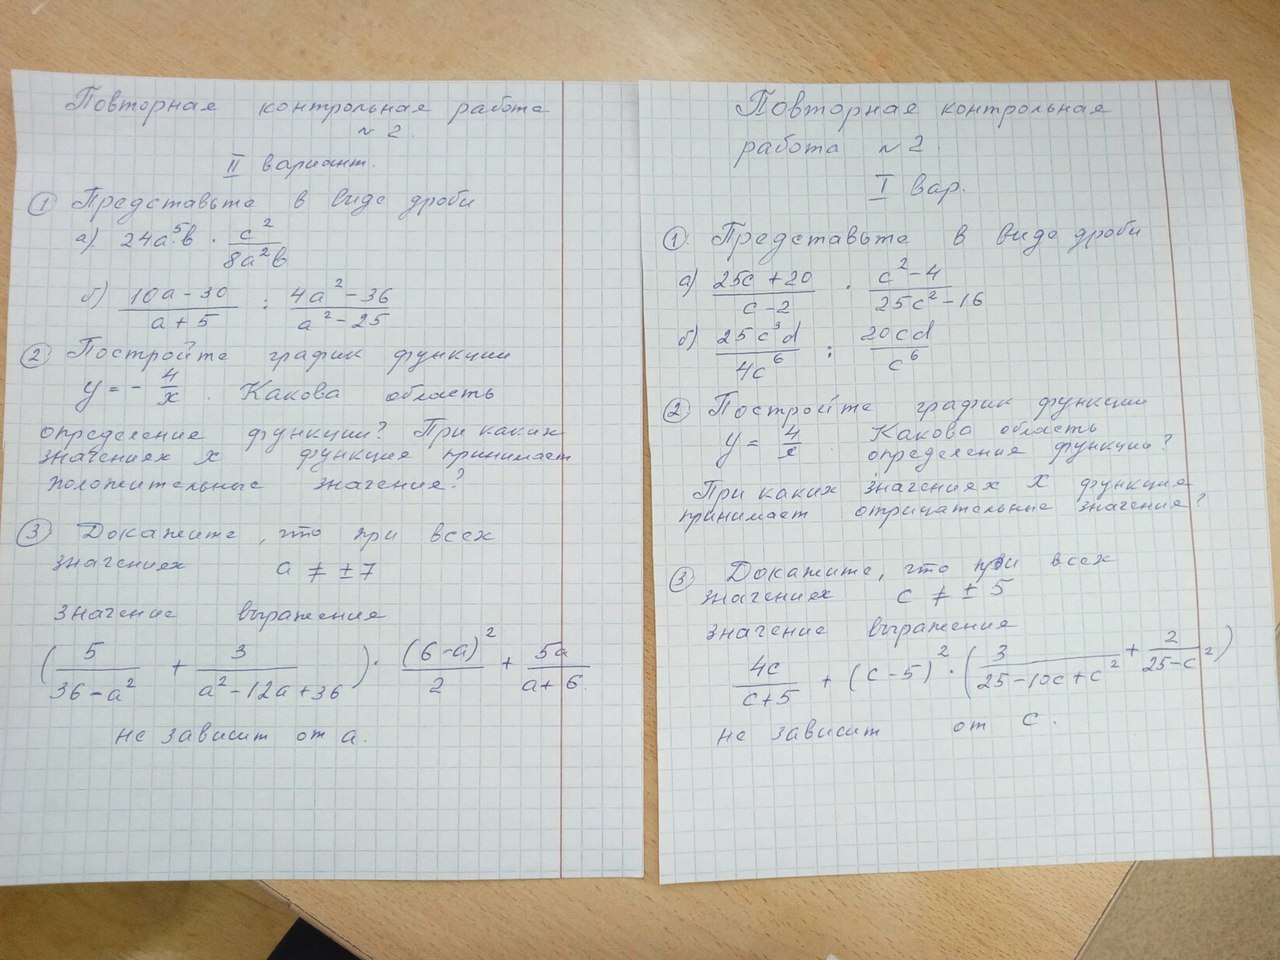 Повторная контрольная работа
№ 2.
II вариант.
① Представьте в виде дроби
а) 24a⁵b · c²/(8a²b)
б) (10a - 30)/(a + 5) : (4a² - 36)/(a² - 25)
② Постройте график функции
y = - 4/x . Какова область
определение функции? При каких
значениях x функция принимает
положительные значения?
③ Докажите, что при всех
значениях a ≠ ± 7
значение выражения
(5/(36 - a²) + 3/(a² - 12a + 36)) · (6 - a)²/2 + 5a/(a + 6).
не зависит от a.
Повторная контрольная
работа №2.
I вар.
① Представьте в виде дроби
а) (25c + 20)/(c - 2) · (c² - 4)/(25c² - 16)
б) 25c³d/(4c⁶) : 20cd/c⁶
② Постройте график функции
y = 4/x . Какова область
определения функции?
При каких значениях x функция
принимает отрицательные значения?
③ Докажите, что при всех
значениях c ≠ ± 5
значение выражения
4c/(c + 5) + (c - 5)² · (3/(25 - 10c + c²) + 2/(25 - c²))
не зависит от c.